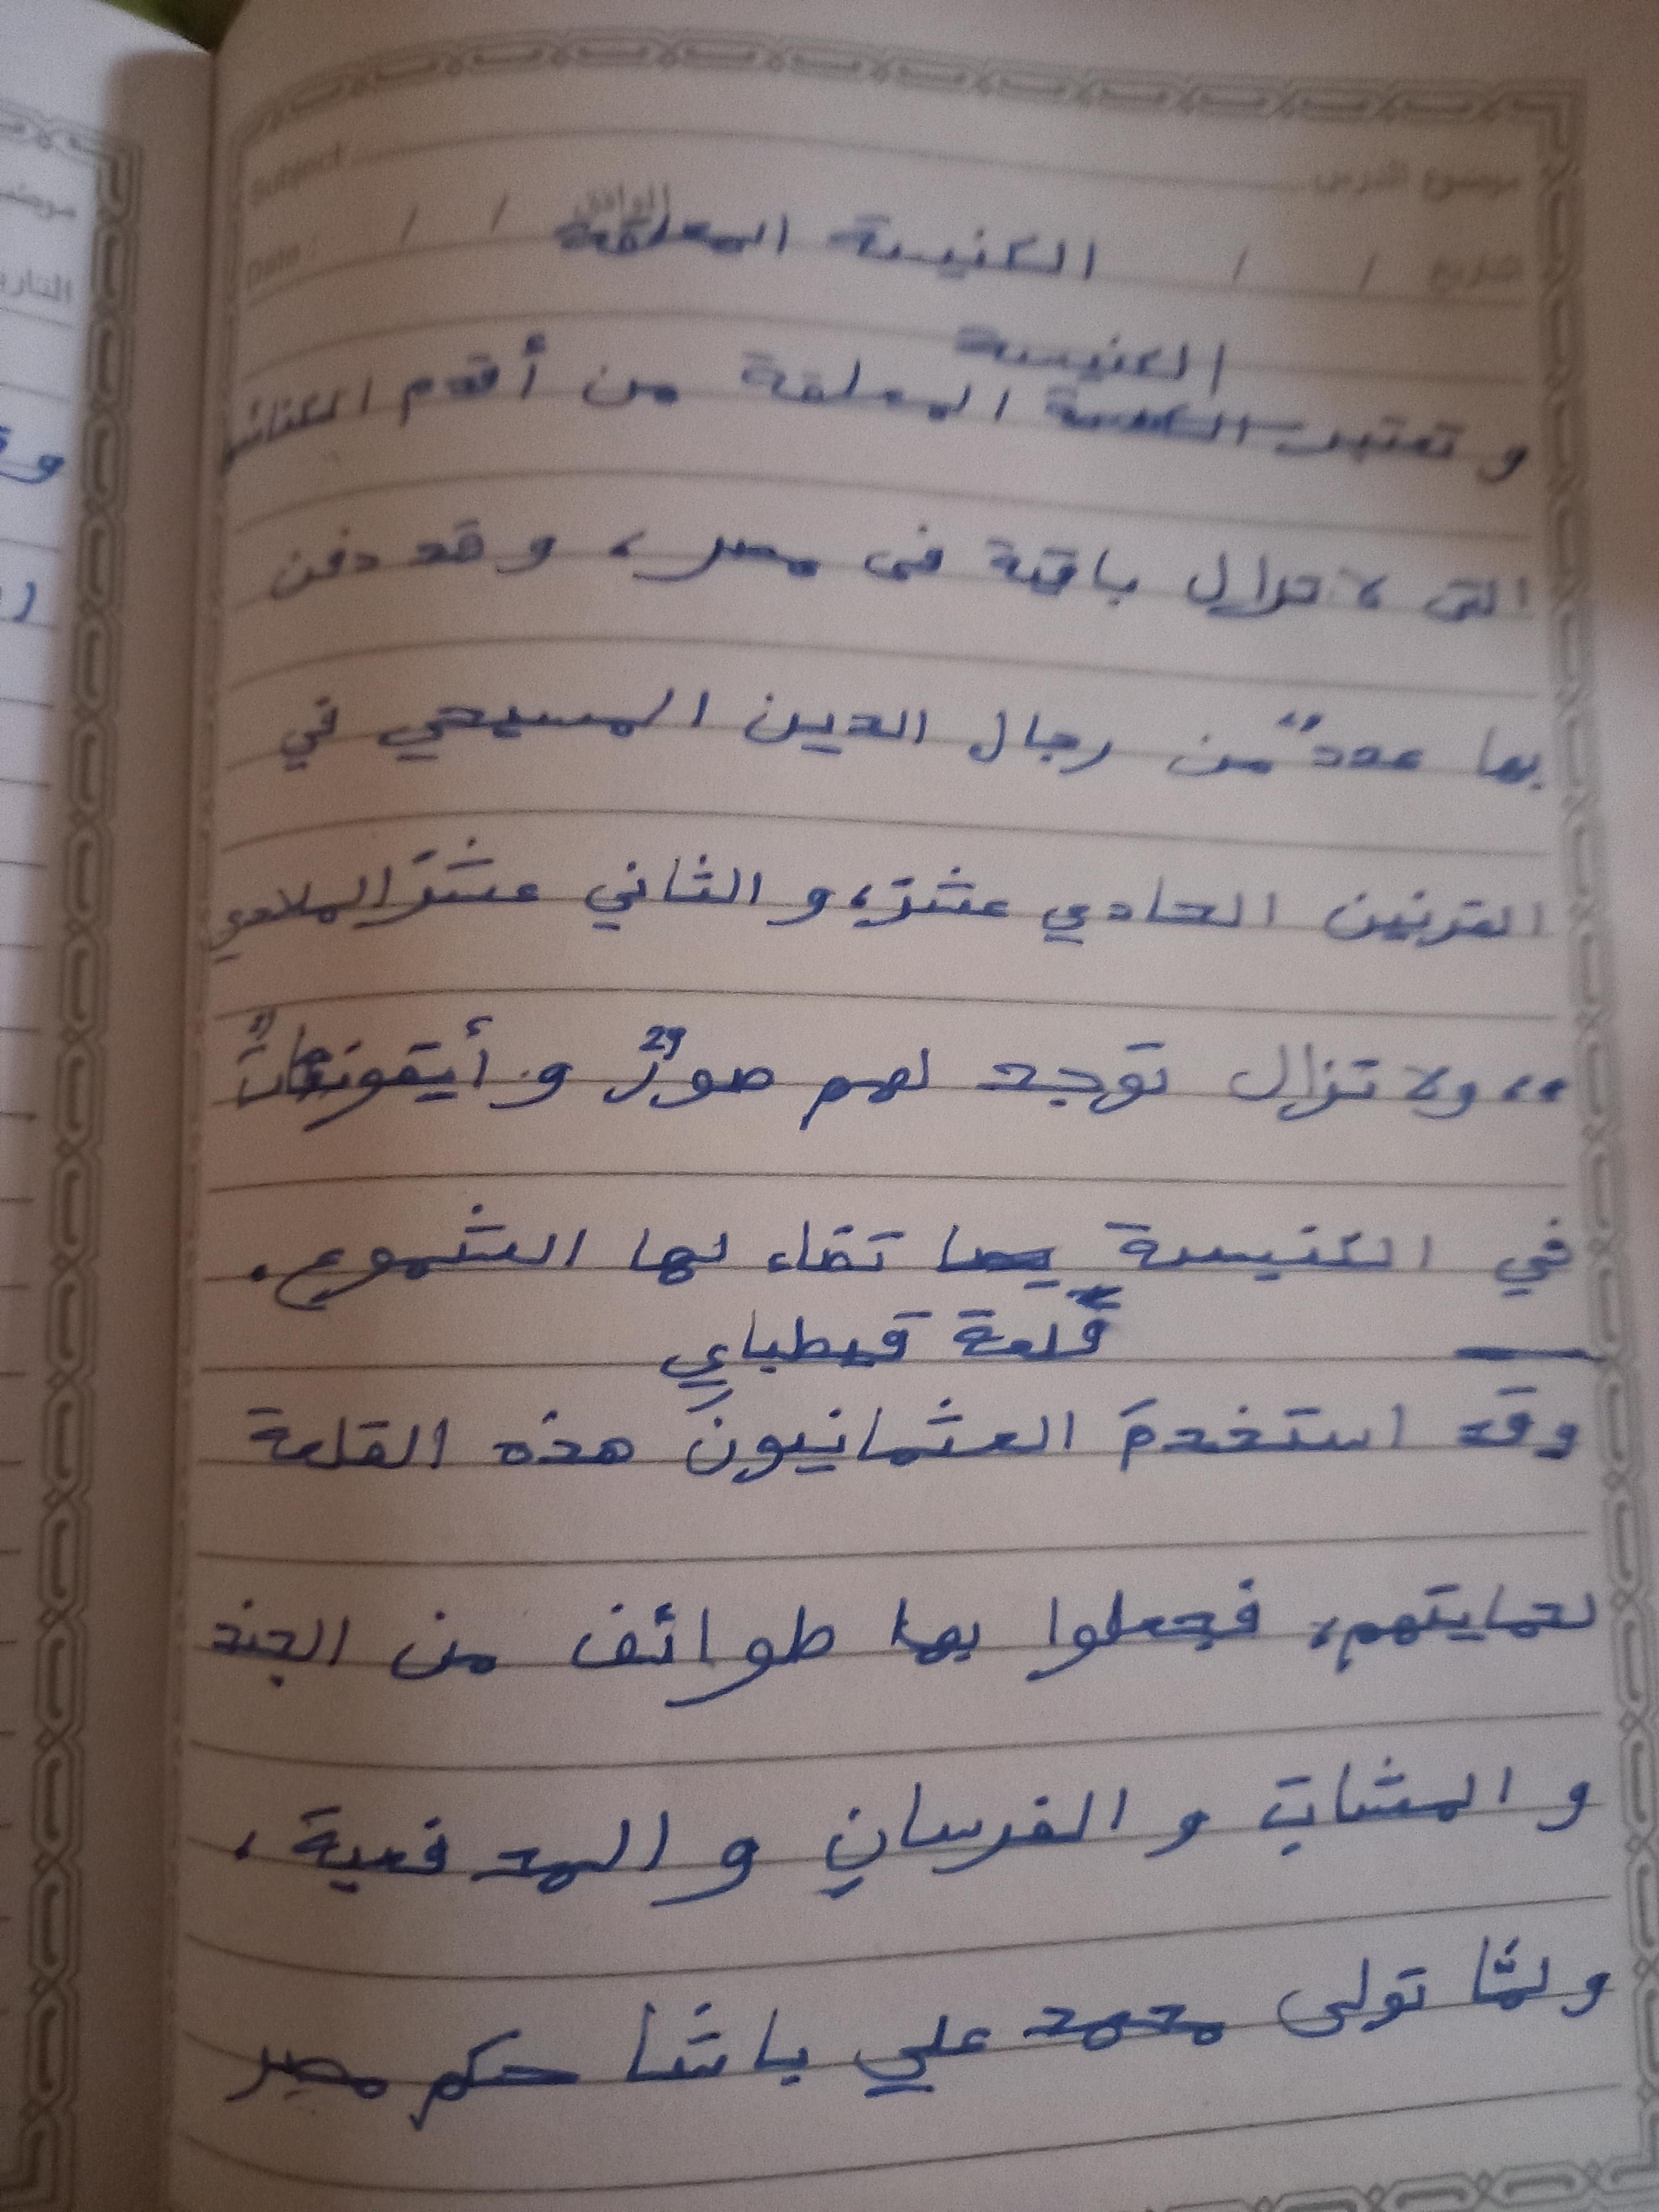 Subject موضوع الدرس
Date : / / الموافق / / التاريخ
الكنيسة المعلقة
الكنيسة
و تعتبر الكنسة المعلقة من أقدم الكنائس
التى لا تزال باقية فى مصر، و قد دفن
بها عددٌ من رجال الدين المسيحي في
القرنين الحادي عشرَ، و الثاني عشرَ الملادي
،، ولا تزال توجد لهم صورٌ و أيقوناتٌ
في الكنيسة تضاء لها الشموع.
قلعة قيطباي
وقد استخدمَ العثمانيونَ هذه القلعة
لحمايتهم، فجعلوا بها طوائف من الجند
و المشات و الفرسان و المدفعية ،
ولمَّا تولى محمد علي باشا حكم مصر
موضو
التاري
وق